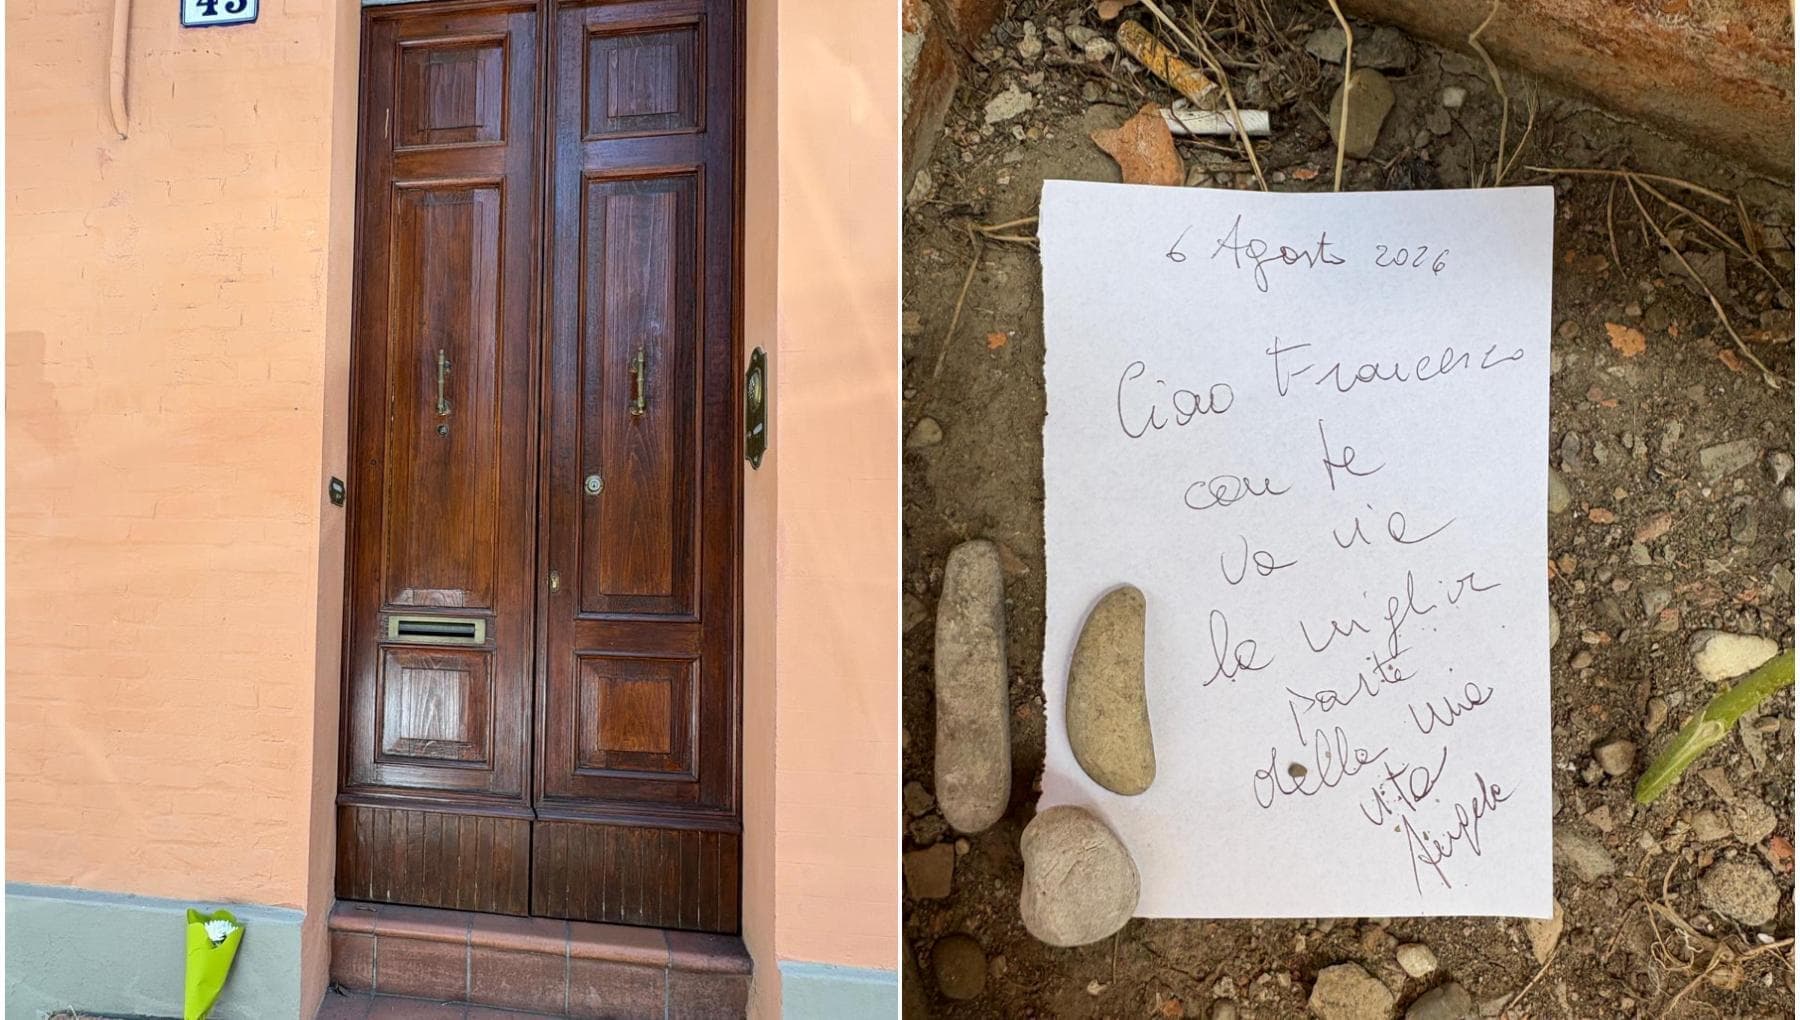 43
6 Agosto 2026
Ciao Francesco
con te
va via
la miglior
parte
della mia
vita
Angela